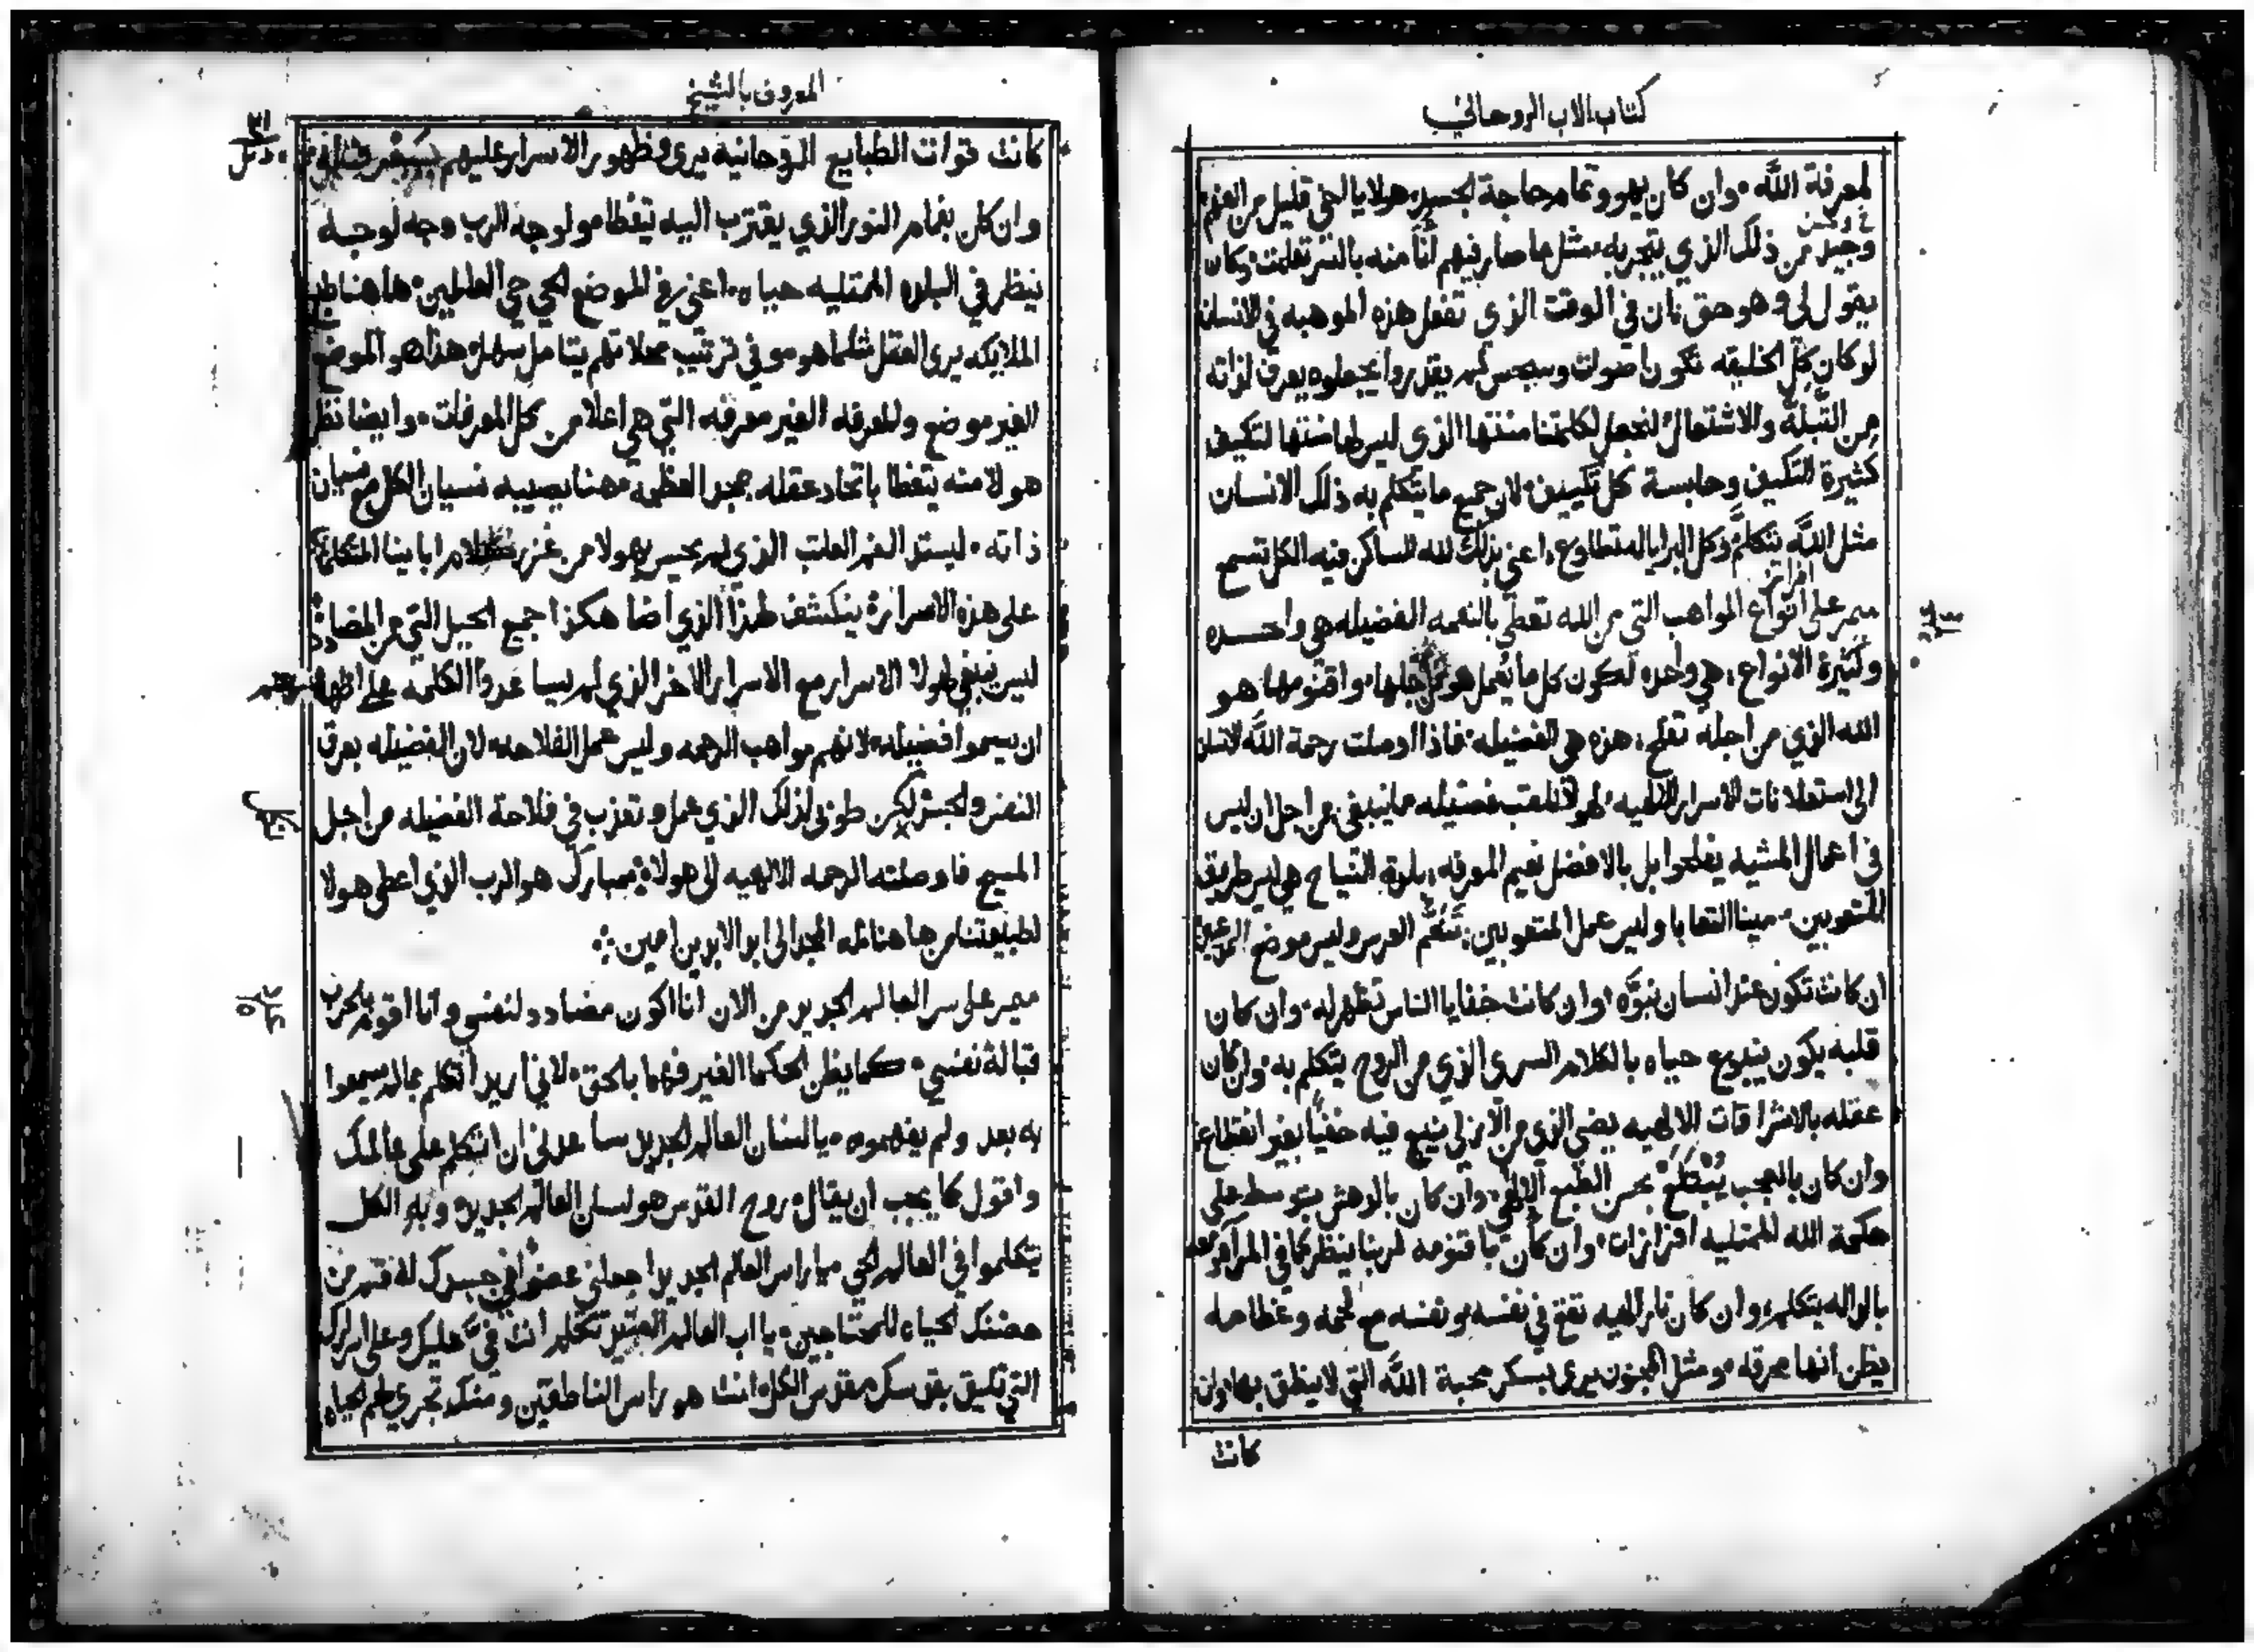 كتاب الاب الروحاني
لمعرفة الله وان كان يهوو تمام حاجة لجسده هولايا الحق قليل من
وجيد من ذلك الذي يتجربه مثل ما صار فيهم انا منه بالسر تعلمت وكان
يقول لي وهو حق بان في الوقت الذي تفعل هذه الموهبه في الانسان
لو كان كل الخليقه تكون اصوات وسجس لم يقدروا يجعلوه يعرف لذاته
من التبله والاشتعال لنجعل لكلمتنا منتها الذي ليس لها منتها لتكييف
كثيرة التكييف وحابسة كل تكييف لان جميع ما يتكلم به ذلك الانسان
مثل الله يتكلم وكل البرايا له تتطاوع اعني بذلك لله الساكن فيه الكل تسمع
افرازات
ميمر على انواع المواهب التي من الله تعطى بالنعمه الفضيله هي واحده
وكثيرة الانواع هي واحده لكون كل ما يعمل هو من اجلها واقنومها هو
الله الذي من اجله تفلح هذه هي الفضيله فاذا اوصلت رحمة الله لانسان
الى استعلانات الاسرار الالهيه لهو لا تلقب فضيله ما ينبغي من اجل ان ليس
في اعمال المشيه يفلحوا بل بالافضل نعيم المعرفه بلدة النياح هي ليس طريق
المتعوبين مينا التعابا وليس عمل المتعوبين تنعم العرس وليس موضع
ان كانت تكون عند انسان نبوه وان كانت خفايا الناس تظهر له وان كان
قلبه يكون ينبوع حياه بالكلام السري الذي من الروح يتكلم به وان كان
عقله بالاشراقات الالهيه يضي الذي من الازلي ينبع فيه خفيا بغير انقطاع
وان كان بالعجب يبتلع بحسن الطبع الالهي وان كان بالدهش يتوسط على
حكمة الله الممتليه افرازات وان كان باقنومه لربنا ينظر كما في المراه ومعه
بالواله يتكلم وان كان نار الهيه تقع في نفسه ونفسه مع لحمه وعظامه
يظن انها محرقه ومثل المجنون يرى بسكر محبة الله التي لا ينطق بها وان
كانت
المعروف بالشيخ
كانت قوات الطبايع الروحانيه يرى وظهور الاسرار عليهم
وان كان بغمام النور الذي يقترب اليه يتغطا مو لوجه الرب وجه لوجه
ينظر في البلده الممتليه حياه اعني في الموضع الحي حي العالمين هاهنا طبع
الملايكه يرى العقل مثلما هو مو في ترتيب محلاتهم يتامل سهله هذا هو الموضع
الغير موضع والمعرفه الغير معرفه التي هي اعلا من كل المعرفات وايضا نظر
هولا منه يتغطا باتحاد عقله بمجد العظمه هنا يصيبه نسيان الكل مع نسيان
ذاته ليستد الفم العاتب الذي لم يحس بهولا من ابابينا المتكلم
على هذه الاسرار ينكشف لهذا الذي اضا هكذا جميع الحيل التي من المضادد
ليس ينبغي لهولا الاسرار مع الاسرار الاخر الذي لم يسا عدوا الكلمه على
ان يسموا فضيله لانهم مواهب الرحمه وليس عمل الفلاحه لان الفضيله بعرق
النفس والجسد لكن طوبى لذلك الذي عمل وتعذب في فلاحة الفضيله من اجل
المسيح فاوصلته الرحمه الالهيه الى هولاء مبارك هو الرب الذي اعطى هولا
لطبيعتنا من هاهنا له المجد الى ابد الابدين امين
ميمر على سر العالم الجديد من الان انا اكون مضادد لنفسي وانا اقوم بالحرب
قبالة نفسي كما يظن الحكما الغير فهما بالحق لاني اريد اتكلم بما لم يسمعوا
به بعد ولم يفهموه يا لسان العالم الجديد ساعدني ان اتكلم على عالمك
واقول كما يجب ان يقال روح القدس هو لسان العالم الجديد وبه الكل
يتكلموا في العالم الحي يا راس العالم الجديد اجعلني عضوا في جسدك له فم من
حضنك الحياه للمحتاجين يا اب العالم العتيد تكلم انت في عليك وعلى اسرارك
التي تليق بقدسك مقدس الكل انت هو راس الناطقين ومنك تجري لهم الحياه